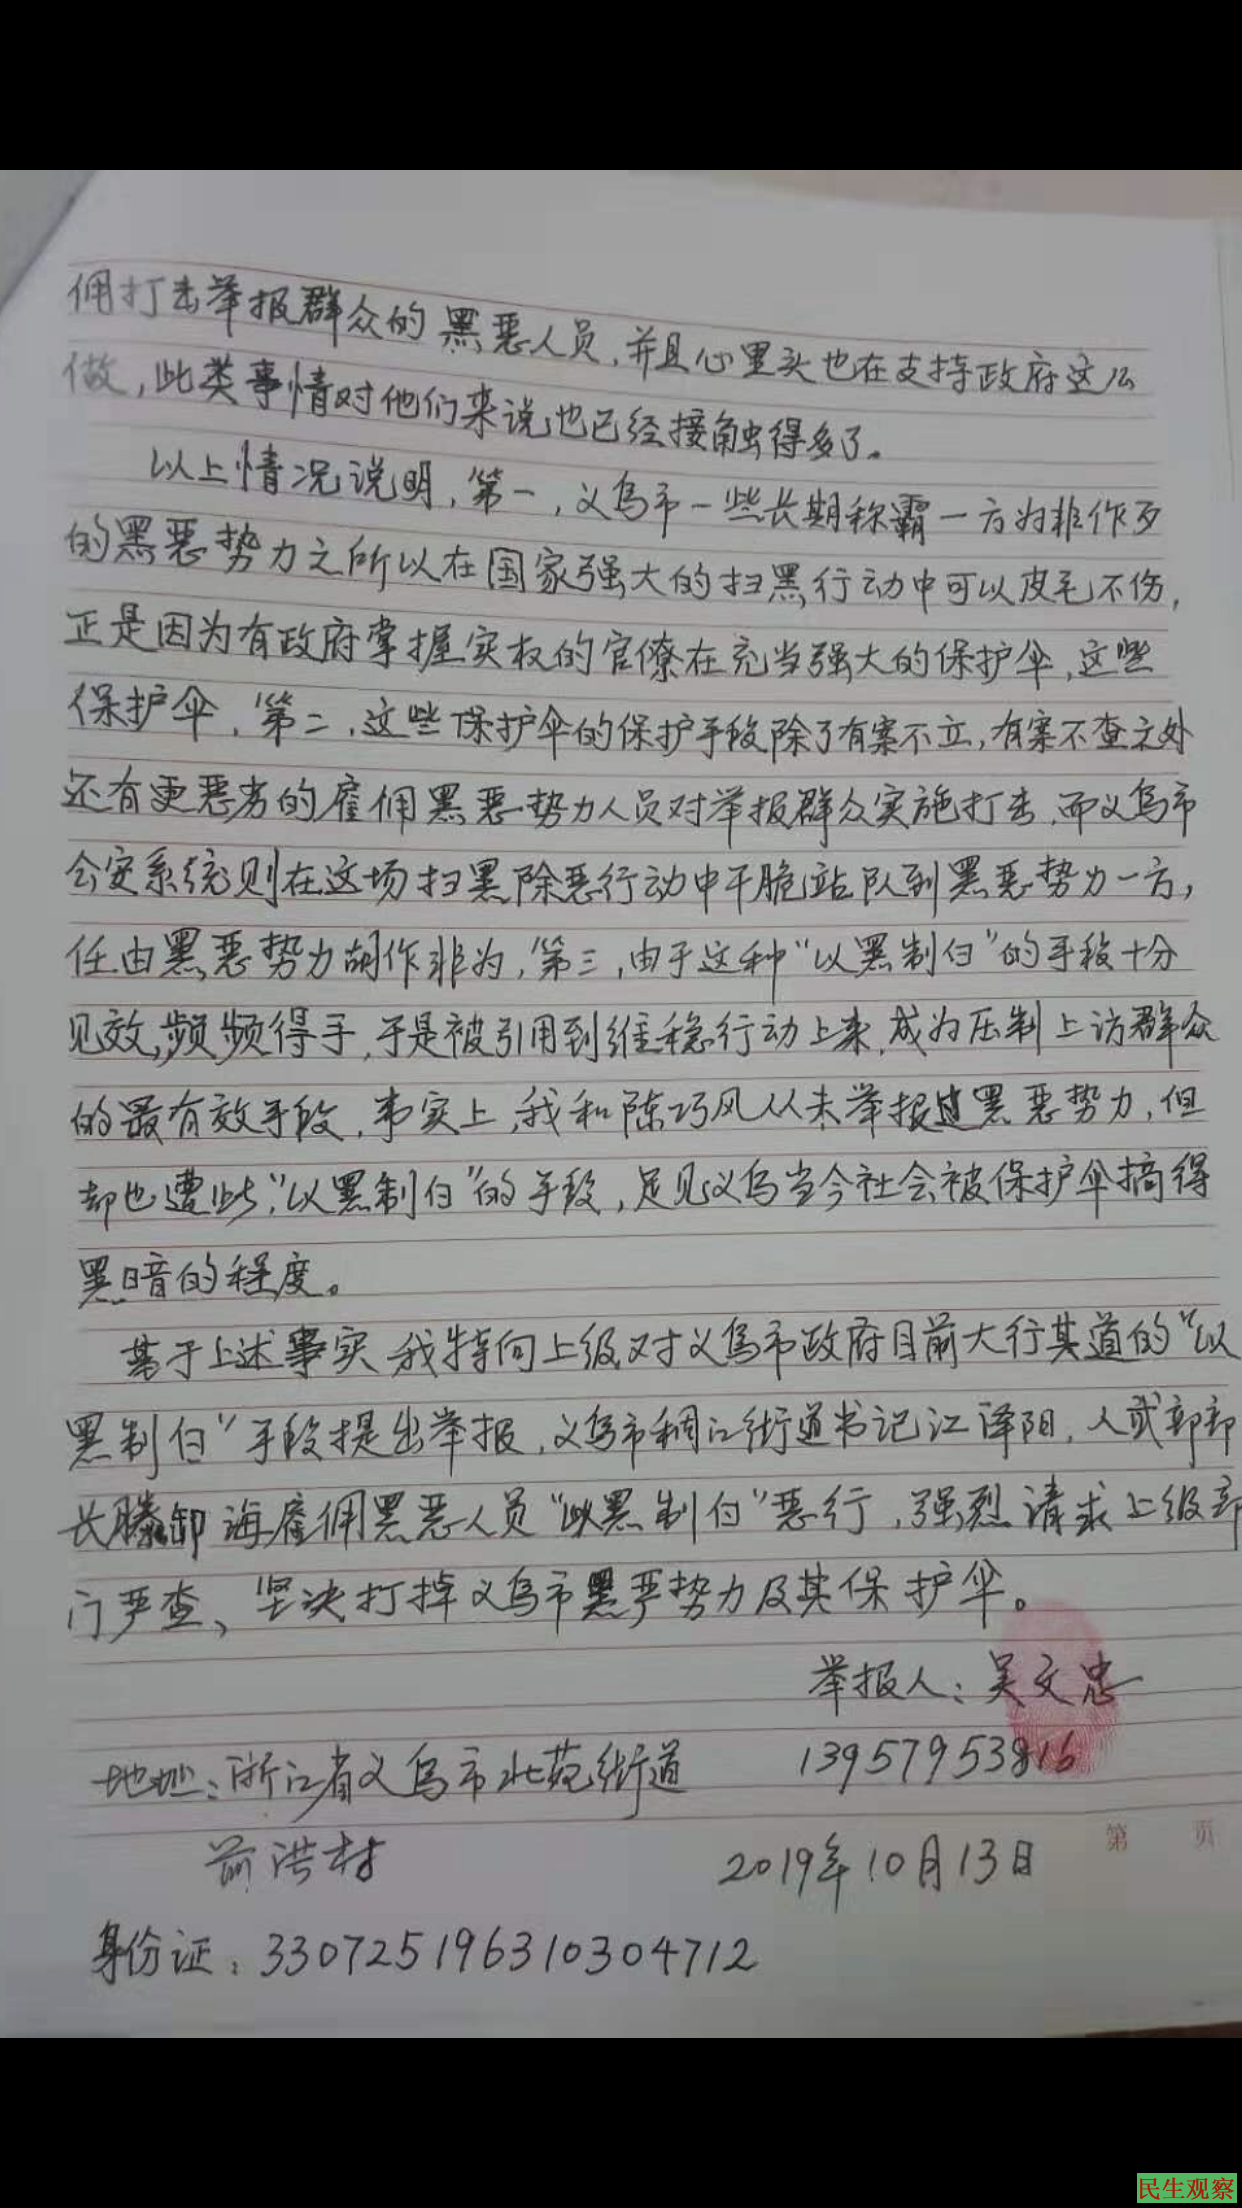 佣打击举报群众的黑恶人员,并且心里头也在支持政府这么
做,此类事情对他们来说也已经接触得多了。
以上情况说明,第一,义乌市一些长期称霸一方为非作歹
的黑恶势力之所以在国家强大的扫黑行动中可以皮毛不伤,
正是因为有政府掌握实权的官僚在充当强大的保护伞,这些
保护伞,第二,这些保护伞的保护手段除了有案不立,有案不查之外
还有更恶劣的雇佣黑恶势力人员对举报群众实施打击,而义乌市
公安系统则在这场扫黑除恶行动中干脆站队到黑恶势力一方,
任由黑恶势力胡作非为,第三,由于这种“以黑制白”的手段十分
见效,频频得手,于是被引用到维稳行动上来,成为压制上访群众
的最有效手段,事实上,我和陈巧风从未举报过黑恶势力,但
却也遭此“以黑制白”的手段,足见义乌当今社会被保护伞搞得
黑暗的程度。
基于上述事实,我特向上级对义乌市政府目前大行其道的“以
黑制白”手段提出举报,义乌市稠江街道书记江泽阳,人武部部
长滕卸海雇佣黑恶人员“以黑制白”恶行,强烈请求上级部
门严查、坚决打掉义乌市黑恶势力及其保护伞。
举报人:吴文忠
地址:浙江省义乌市北苑街道 13957953816
前洪村 2019年10月13日
第 页
身份证:330725196310304712
民生观察